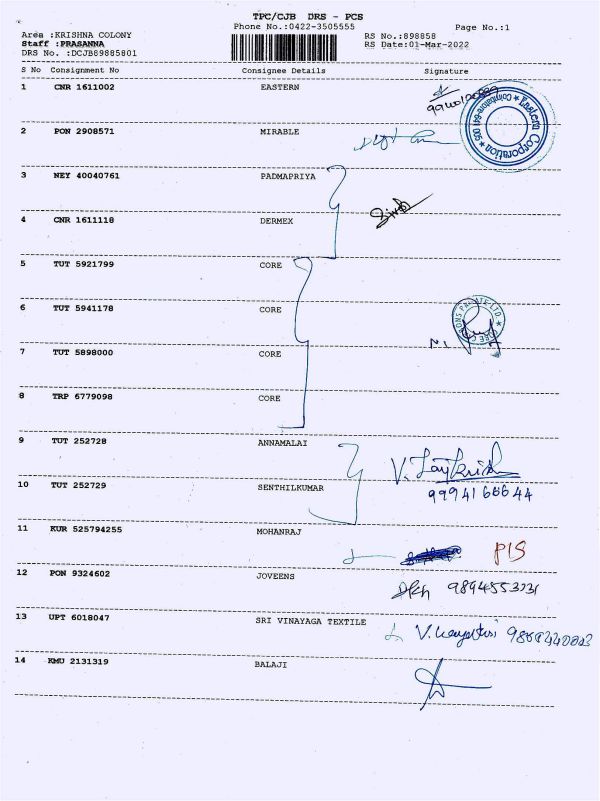 TPC/CJB DRS - PCS
Phone No.:0422-3505555
Page No.:1
Area :KRISHNA COLONY
Staff :PRASANNA
DRS No. :DCJB89885801
RS No.:898858
RS Date:01-Mar-2022
S No Consignment No Consignee Details Signature
1 CNR 1611002 EASTERN
Eastern Corporation * Coimbatore-641 005 *
2 PON 2908571 MIRABLE
3 NEY 40040761 PADMAPRIYA
4 CNR 1611118 DERMEX
5 TUT 5921799 CORE
6 TUT 5941178 CORE
7 TUT 5898000 CORE
8 TRP 6779098 CORE
9 TUT 252728 ANNAMALAI
10 TUT 252729 SENTHILKUMAR
99941 66644
11 KUR 525794255 MOHANRAJ
PIS
12 PON 9324602 JOVEENS
9894553231
13 UPT 6018047 SRI VINAYAGA TEXTILE
14 KMU 2131319 BALAJI